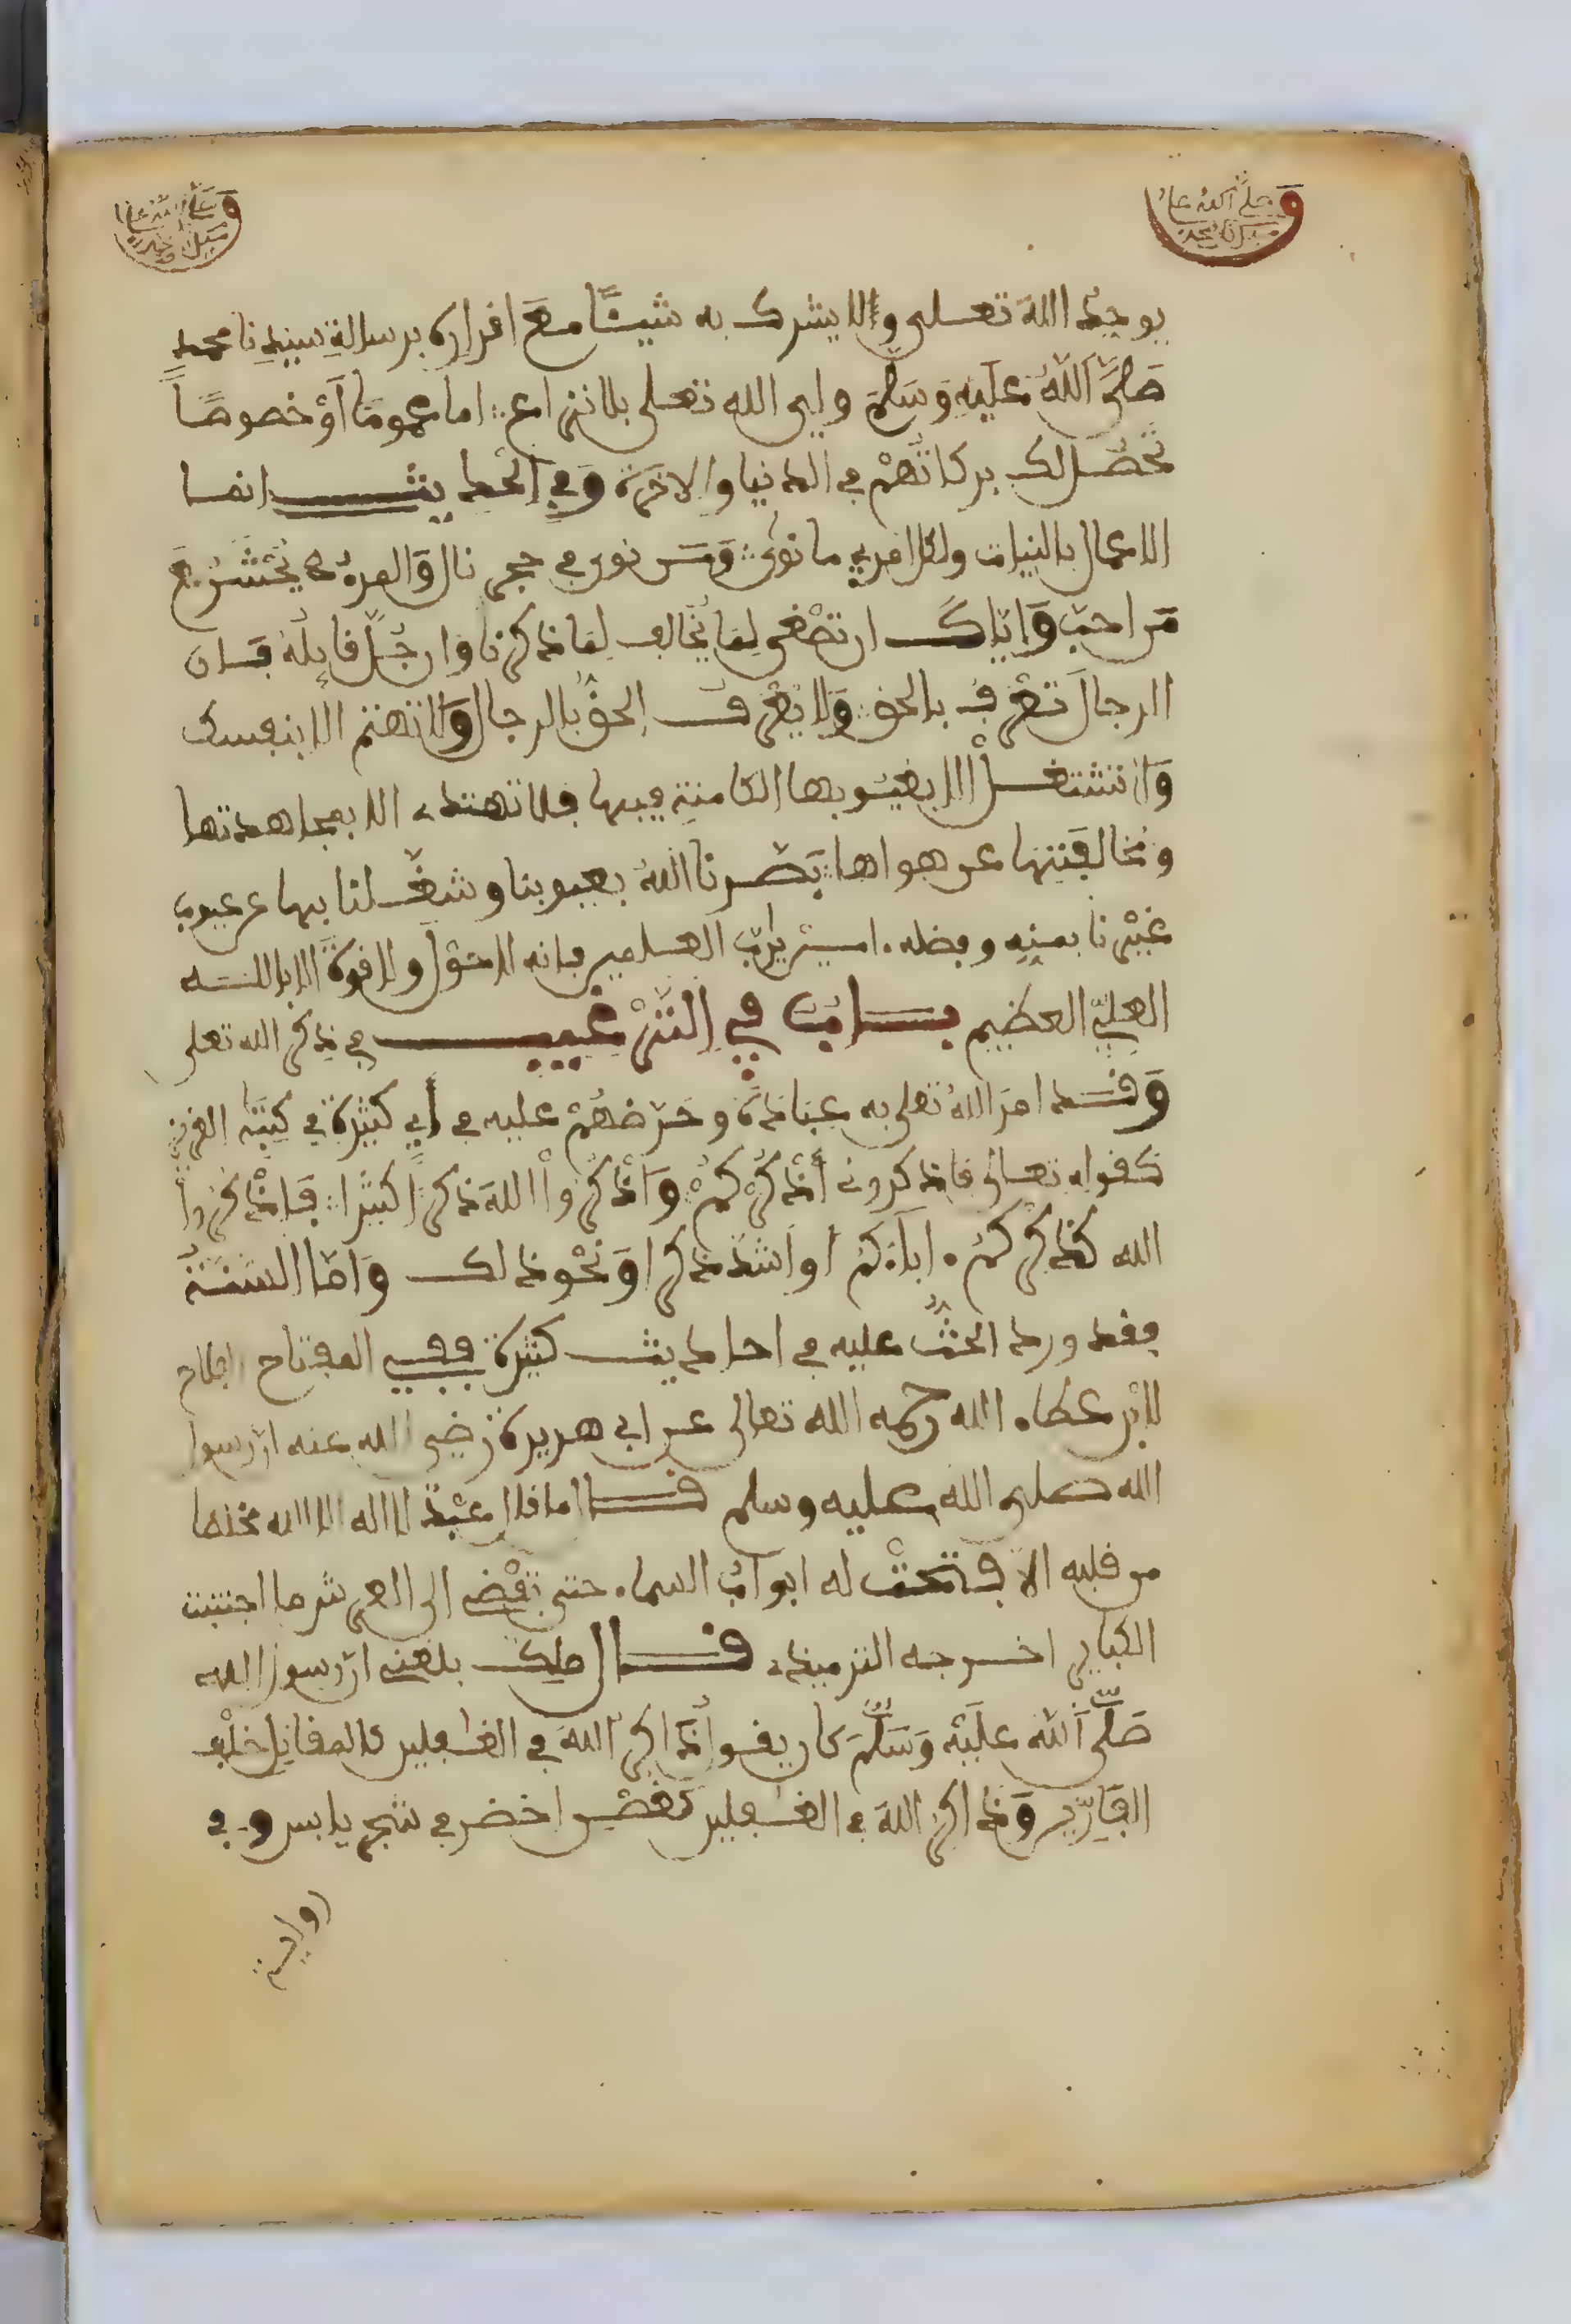 وصلى الله على سيدنا محمد
يوحد الله تعلى ولا يشرك به شيئا مع اقراره برسالة سيدنا محمد
صلى الله عليه وسلم ولى الله تعلى بلا نزاع اما عموما أو خصوصا
تحصل لك بركاتهم في الدنيا والاخرة وفي الحديث انما
الاعمال بالنيات ولكل امرئ ما نوى ومن نوى في حجر نال والمرء يحشر مع
من احب واياك ان تصغى لما يخالف لما ذكرنا وان جل قايله فان
الرجال تعرف بالحق ولا يعرف الحق بالرجال ولا تهتم الا بنفسك
ولا تشتغل الا بعيوبها الكامنة فيها فلا تهتد الا بمجاهدتها
ومخالفتها عن هواها بصرنا الله بعيوبنا وشغلنا بها عن عيوب
غيرنا بمنه وفضله امين يارب العلمين فانه لا حول ولا قوة الا بالله
العلي العظيم باب في الترغيب في ذكر الله تعلى
وقد امر الله تعلى به عباده وحرضهم عليه في أي كثيرة في كتبه العزيز
كقوله تعالى فاذكروني أذكركم واذكروا الله ذكرا كثيرا فاذكروا
الله كذكركم اباءكم او اشد ذكرا ونحو ذلك واما السنة
فقد ورد الحث عليه في احاديث كثيرة ففي المفتاح الفلاح
لابن عطاء الله رحمه الله تعالى عن ابي هريرة رضي الله عنه ان رسول
الله صلى الله عليه وسلم قال ما قال عبد لا اله الا الله مخلصا
من قلبه الا فتحت له ابواب السماء حتى تفضي الى العرش ما اجتنبت
الكباير اخرجه الترميذي قال ملك بلغني ان رسول الله
صلى الله عليه وسلم كان يقول ذاكر الله في الغفلين كالمقاتل خلف
الفارين وذاكر الله في الغفلين كغصن اخضر في شجر يابس وفي
رواية